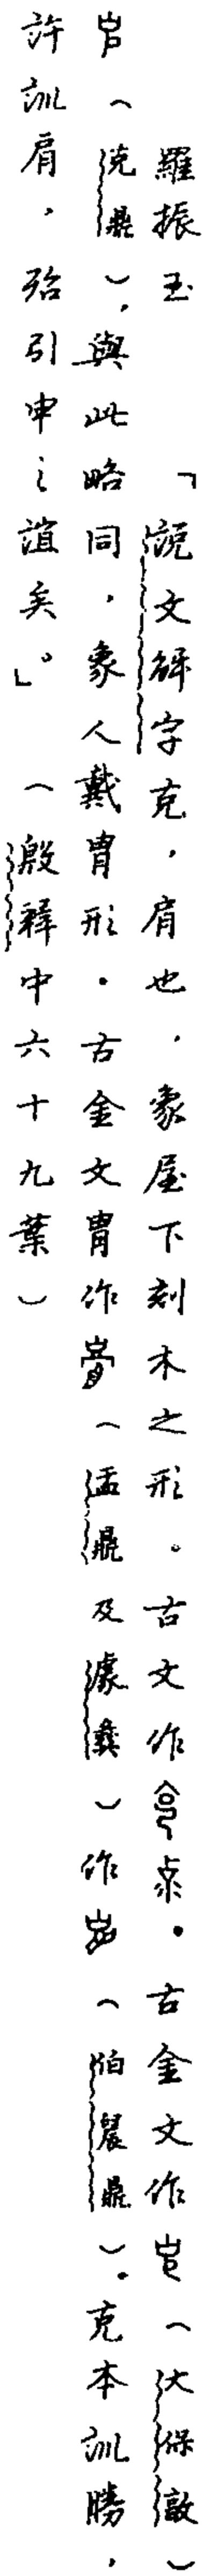 羅振玉「說文解字克，肩也，象屋下刻木之形。古文作。古金文作（大保敦）
（克鼎），與此略同，象人戴冑形。古金文冑作（盂鼎及彔彝）作（伯晨鼎）。克本訓勝，
許訓肩，殆引申之誼矣。」（殷釋中六十九葉）